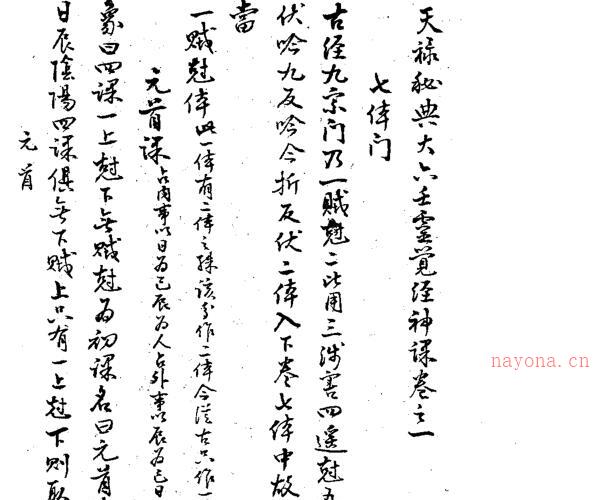 天禄秘典大六壬靈覚经神課巻之一
七体门
古经九宗门乃一贼尅二比用三涉害四遥尅五
伏吟九反吟今折反伏二体入下巻七体中故
當
一贼尅体此一体有二体之殊该分作二体今従古只作一
元首課 占内事以日为己辰为人占外事以辰为己日
象曰四課一上尅下無贼尅为初課名曰元首
日辰陰陽四課俱無下贼上只有一上尅下则取
元首
nayona.cn